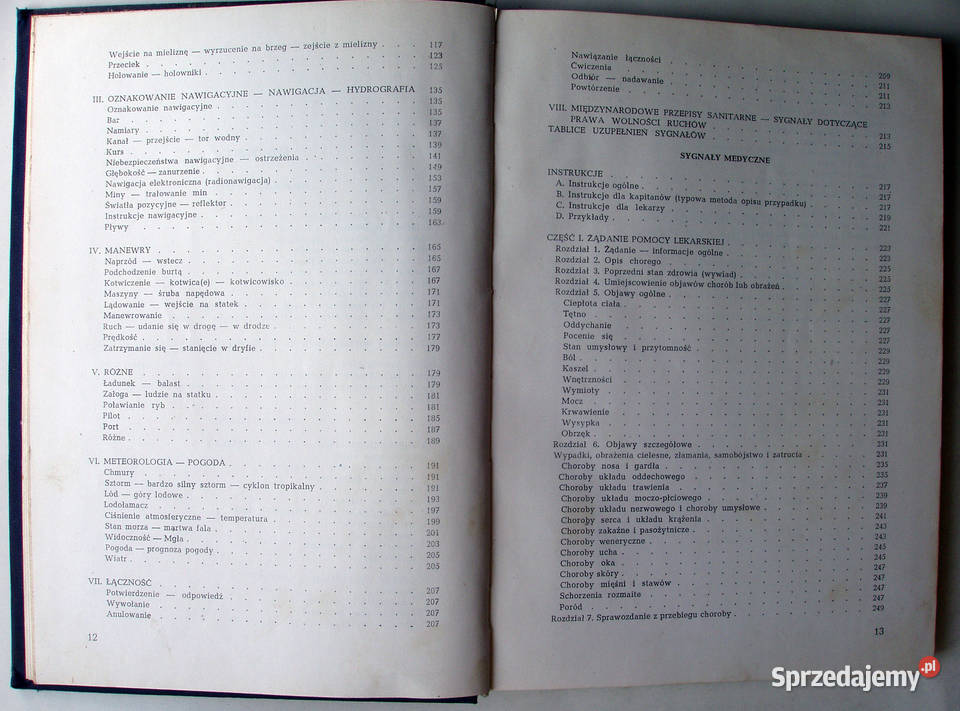 Wejście na mieliznę — wyrzucenie na brzeg — zejście z mielizny . . . 117
Przeciek . . . 123
Holowanie — holowniki . . . 125
III. OZNAKOWANIE NAWIGACYJNE — NAWIGACJA — HYDROGRAFIA 135
Oznakowanie nawigacyjne . . . 135
Bar . . . 135
Namiary . . . 137
Kanał — przejście — tor wodny . . . 137
Kurs . . . 139
Niebezpieczeństwa nawigacyjne — ostrzeżenia . . . 141
Głębokość — zanurzenie . . . 149
Nawigacja elektroniczna (radionawigacja) . . . 153
Miny — trałowanie min . . . 157
Światła pozycyjne — reflektor . . . 159
Instrukcje nawigacyjne . . . 159
Pływy . . . 163
IV. MANEWRY . . . 165
Naprzód — wstecz . . . 165
Podchodzenie burtą . . . 167
Kotwiczenie — kotwica(e) — kotwicowisko . . . 167
Maszyny — śruba napędowa . . . 171
Lądowanie — wejście na statek . . . 171
Manewrowanie . . . 173
Ruch — udanie się w drogę — w drodze . . . 173
Prędkość . . . 177
Zatrzymanie się — stanięcie w dryfie . . . 179
V. RÓŻNE . . . 179
Ładunek — balast . . . 179
Załoga — ludzie na statku . . . 181
Poławianie ryb . . . 181
Pilot . . . 185
Port . . . 187
Różne . . . 189
VI. METEOROLOGIA — POGODA . . . 191
Chmury . . . 191
Sztorm — bardzo silny sztorm — cyklon tropikalny . . . 191
Lód — góry lodowe . . . 193
Lodołamacz . . . 197
Ciśnienie atmosferyczne — temperatura . . . 199
Stan morza — martwa fala . . . 201
Widoczność — Mgła . . . 203
Pogoda — prognoza pogody . . . 205
Wiatr . . . 205
VII. ŁĄCZNOŚĆ . . . 207
Potwierdzenie — odpowiedź . . . 207
Wywołanie . . . 207
Anulowanie . . . 207
12
Nawiązanie łączności . . . 209
Ćwiczenia . . . 211
Odbiór — nadawanie . . . 211
Powtórzenie . . . 213
VIII. MIĘDZYNARODOWE PRZEPISY SANITARNE — SYGNAŁY DOTYCZĄCE
PRAWA WOLNOŚCI RUCHÓW . . . 213
TABLICE UZUPEŁNIEŃ SYGNAŁÓW . . . 215
SYGNAŁY MEDYCZNE
INSTRUKCJE . . . 217
A. Instrukcje ogólne . . . 217
B. Instrukcje dla kapitanów (typowa metoda opisu przypadku) . . . 217
C. Instrukcje dla lekarzy . . . 219
D. Przykłady . . . 221
CZĘŚĆ I. ŻĄDANIE POMOCY LEKARSKIEJ . . . 223
Rozdział 1. Żądanie — informacje ogólne . . . 223
Rozdział 2. Opis chorego . . . 225
Rozdział 3. Poprzedni stan zdrowia (wywiad) . . . 225
Rozdział 4. Umiejscowienie objawów chorób lub obrażeń . . . 225
Rozdział 5. Objawy ogólne . . . 227
Ciepłota ciała . . . 227
Tętno . . . 227
Oddychanie . . . 227
Pocenie się . . . 227
Stan umysłowy i przytomność . . . 229
Ból . . . 229
Kaszel . . . 229
Wnętrzności . . . 229
Wymioty . . . 231
Mocz . . . 231
Krwawienie . . . 231
Wysypka . . . 231
Obrzęk . . . 231
Rozdział 6. Objawy szczegółowe . . . 231
Wypadki, obrażenia cielesne, złamania, samobójstwo i zatrucia . . . 231
Choroby nosa i gardła . . . 235
Choroby układu oddechowego . . . 235
Choroby układu trawienia . . . 237
Choroby układu moczo-płciowego . . . 239
Choroby układu nerwowego i choroby umysłowe . . . 239
Choroby serca i układu krążenia . . . 241
Choroby zakaźne i pasożytnicze . . . 243
Choroby weneryczne . . . 243
Choroby ucha . . . 245
Choroby oka . . . 245
Choroby skóry . . . 247
Choroby mięśni i stawów . . . 247
Schorzenia rozmaite . . . 247
Poród . . . 249
Rozdział 7. Sprawozdanie z przebiegu choroby . . .
13
Sprzedajemy.pl